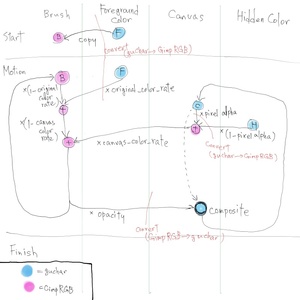 Brush
Foreground
Color
Canvas
Hidden Color
Start
B
F
copy
convert
(guchar→GimpRGB)
Motion
B
F
×(1-original
color
rate)
× original_color_rate
+
C
×(1-canvas
color
rate)
× pixel alpha
+
H
+
× canvas_color_rate
×(1-pixel alpha)
convert
(guchar→GimpRGB)
× opacity
Composite
convert
(GimpRGB→guchar)
Finish
= guchar
= GimpRGB